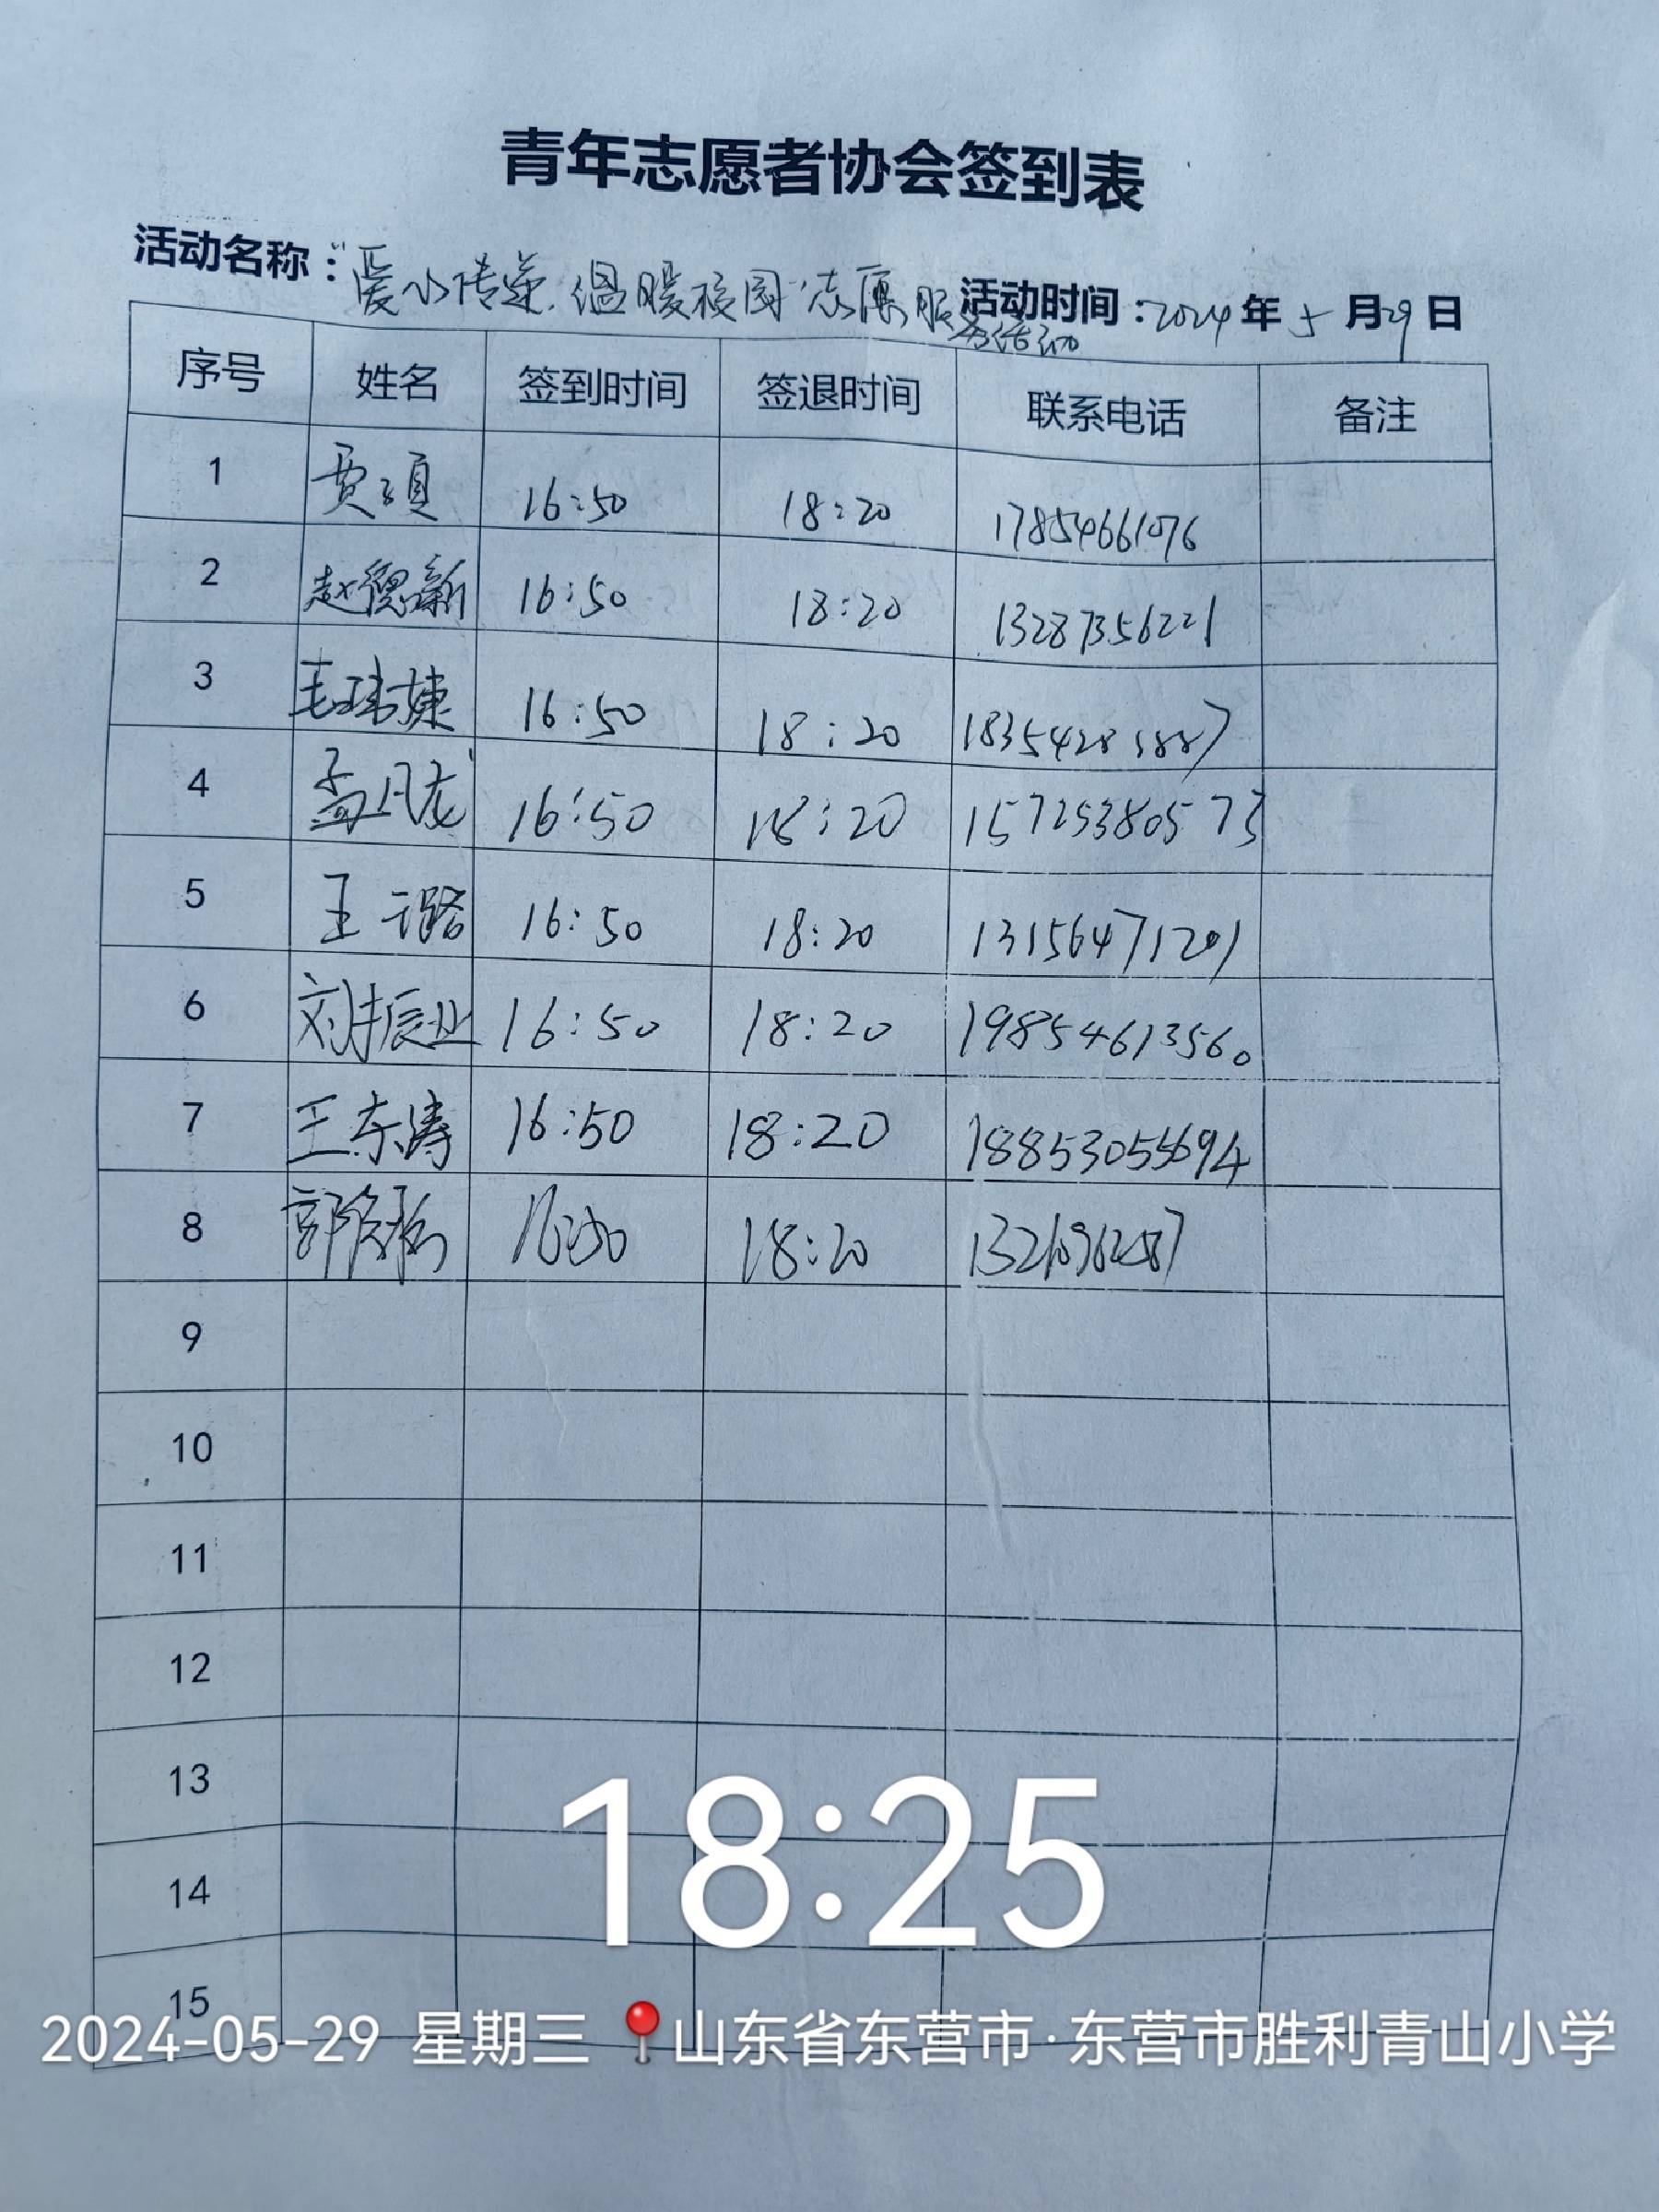 青年志愿者协会签到表
活动名称："爱心传递.温暖校园"志愿服务活动 活动时间：2024年5月29日
序号 姓名 签到时间 签退时间 联系电话 备注
1 贾 16:50 18:20 17854661076
2 赵德新 16:50 18:20 13287356221
3 毛瑞婕 16:50 18:20
4 孟凡龙 16:50 18:20 15725380573
5 王璐 16:50 18:20 13156471201
6 刘振业 16:50 18:20 19854613560
7 王东涛 16:50 18:20 18853055694
8 郭 16:50 18:20
9
10
11
12
13
14
15
18:25
2024-05-29 星期三 山东省东营市·东营市胜利青山小学